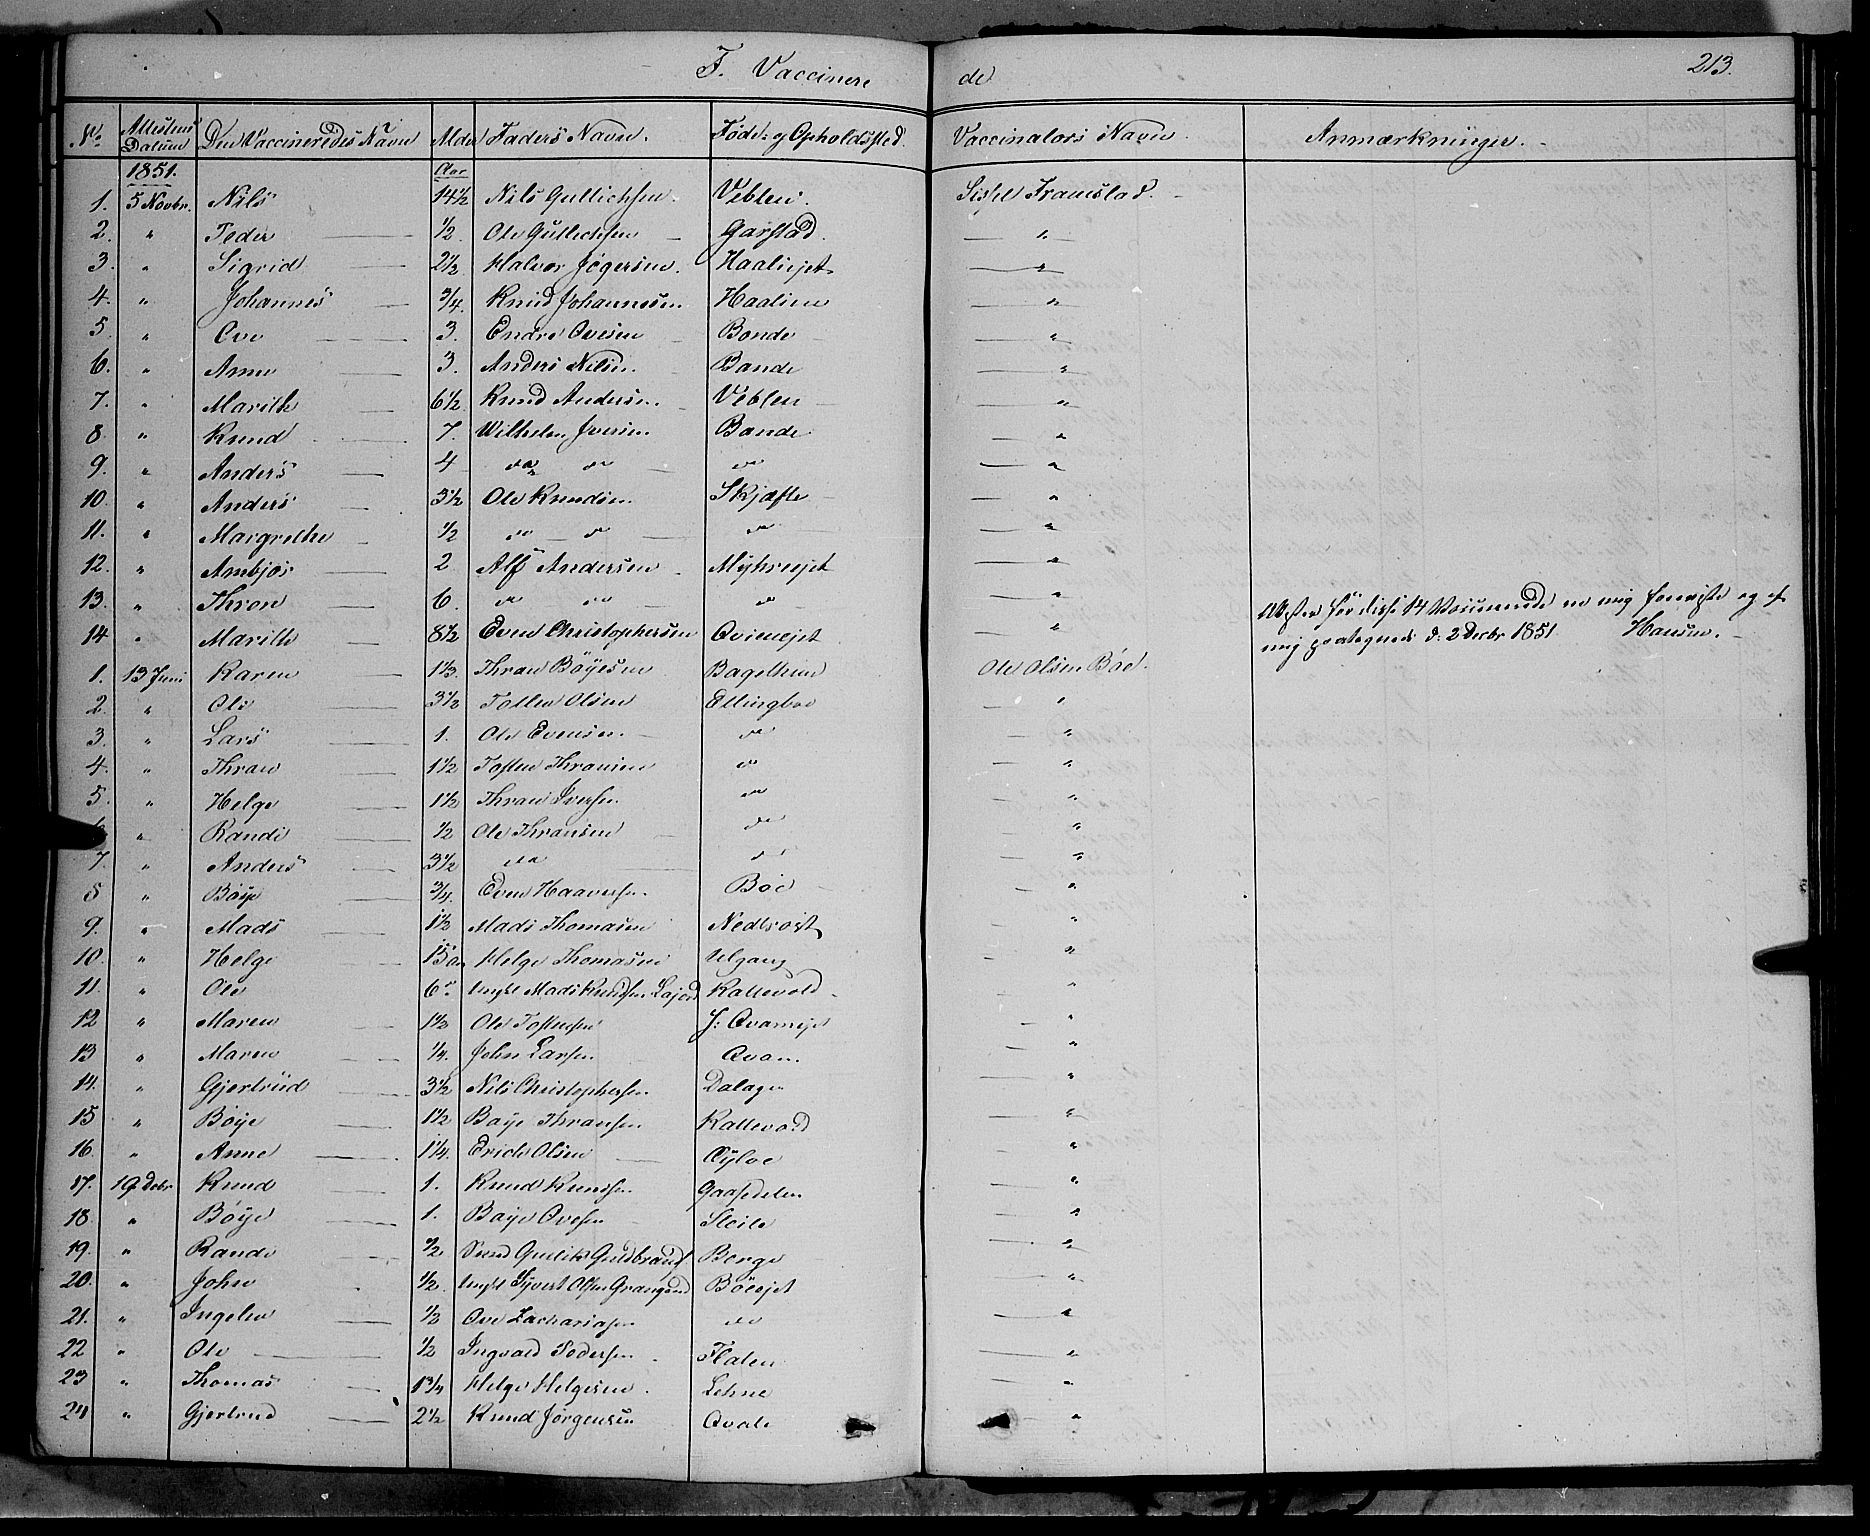 F. Vaccinerede 213.
No. Attestens Datum Den Vaccineredes Navn Alder Faders Navn. Føde- og Opholdssted. Vaccinators Navn Anmærkninger.
1851. Aar
1. 5 Novbr. Nils 14½ Nils Gullichsen. Veblen. Sissel Framstad.
2. " Peder ½ Ole Gullichsen Garstad. "
3. " Sigrid 2½ Halvor Jøgersen. Haaliejet "
4. " Johannes 3/4 Knud Johannesen Haalien "
5. " Ove 3. Endre Ovesen Bonde "
6. " Anne 3. Anders Nilsen Bande "
7. " Marith 6½ Knud Andersen. Veblen "
8 " Knud 7. Wilhelm Iversen Bande "
9. " Anders 4 do do do "
10. " Anders 3½ Ole Knudsen Skjæfte "
11. " Margrethe ½ do do do "
12. " Ambjør 2 Alf Andersen Myhreejet "
13. " Thron 6. do do do "
14 " Marith 8½ Even Christophersen Qvimejet "
Attester for disse 14 Vaccinerede ere mig foreviste og af
mig paategnede d: 2 Decbr 1851. Hansen.
1. 13 Juni Karen 1½. Thran Böyesen Bagelhun Ole Olsen Böe.
2. " Ole 3½ Tollev Olsen Ellingboe "
3. " Lars 1. Ole Evensen do "
4. " Thran 1½ Tosten Thransen do "
5. " Helge 1½ Thran Iversen do "
6 " Randi ½ Ole Thransen do "
7. " Anders 3½ do do "
8 " Böye 3/4. Even Haaversen. Böe "
9. " Mads 1½ Mads Thomasen Nedlrost "
10. " Helge 15 Helge Thomasen Ulgang "
11. " Ole 6 Ungk Mads Knudsen Kattevold "
12 " Maren 1½ Ole Tostensen J: Qvamejet "
13 " Maren ¼. John Larsen Qvam. "
14. " Gjertrud 3½ Nils Christophersen Dalagen "
15 " Böye 1½ Baye Thransen Kattevold "
16. " Anne 1¼. Erich Olsen Øyloe "
17. 19 Debr Knud 1. Knud Knudsen Gaasedelen "
18 " Böye 1. Baye Ovesen Steile "
19. " Randi ½ Gullik Guldbrands Berge "
20. " John ½. Ungk Syvert Olsen Böeejet "
21. " Ingelev ½ Ove Zachariasen do "
22 " Ole ½ Ingvald Pedersen Flaten "
23 " Thomas 1¾ Helge Helgesen. Lehne "
24 " Gjertrud 2½ Knud Jørgensen Qvale "